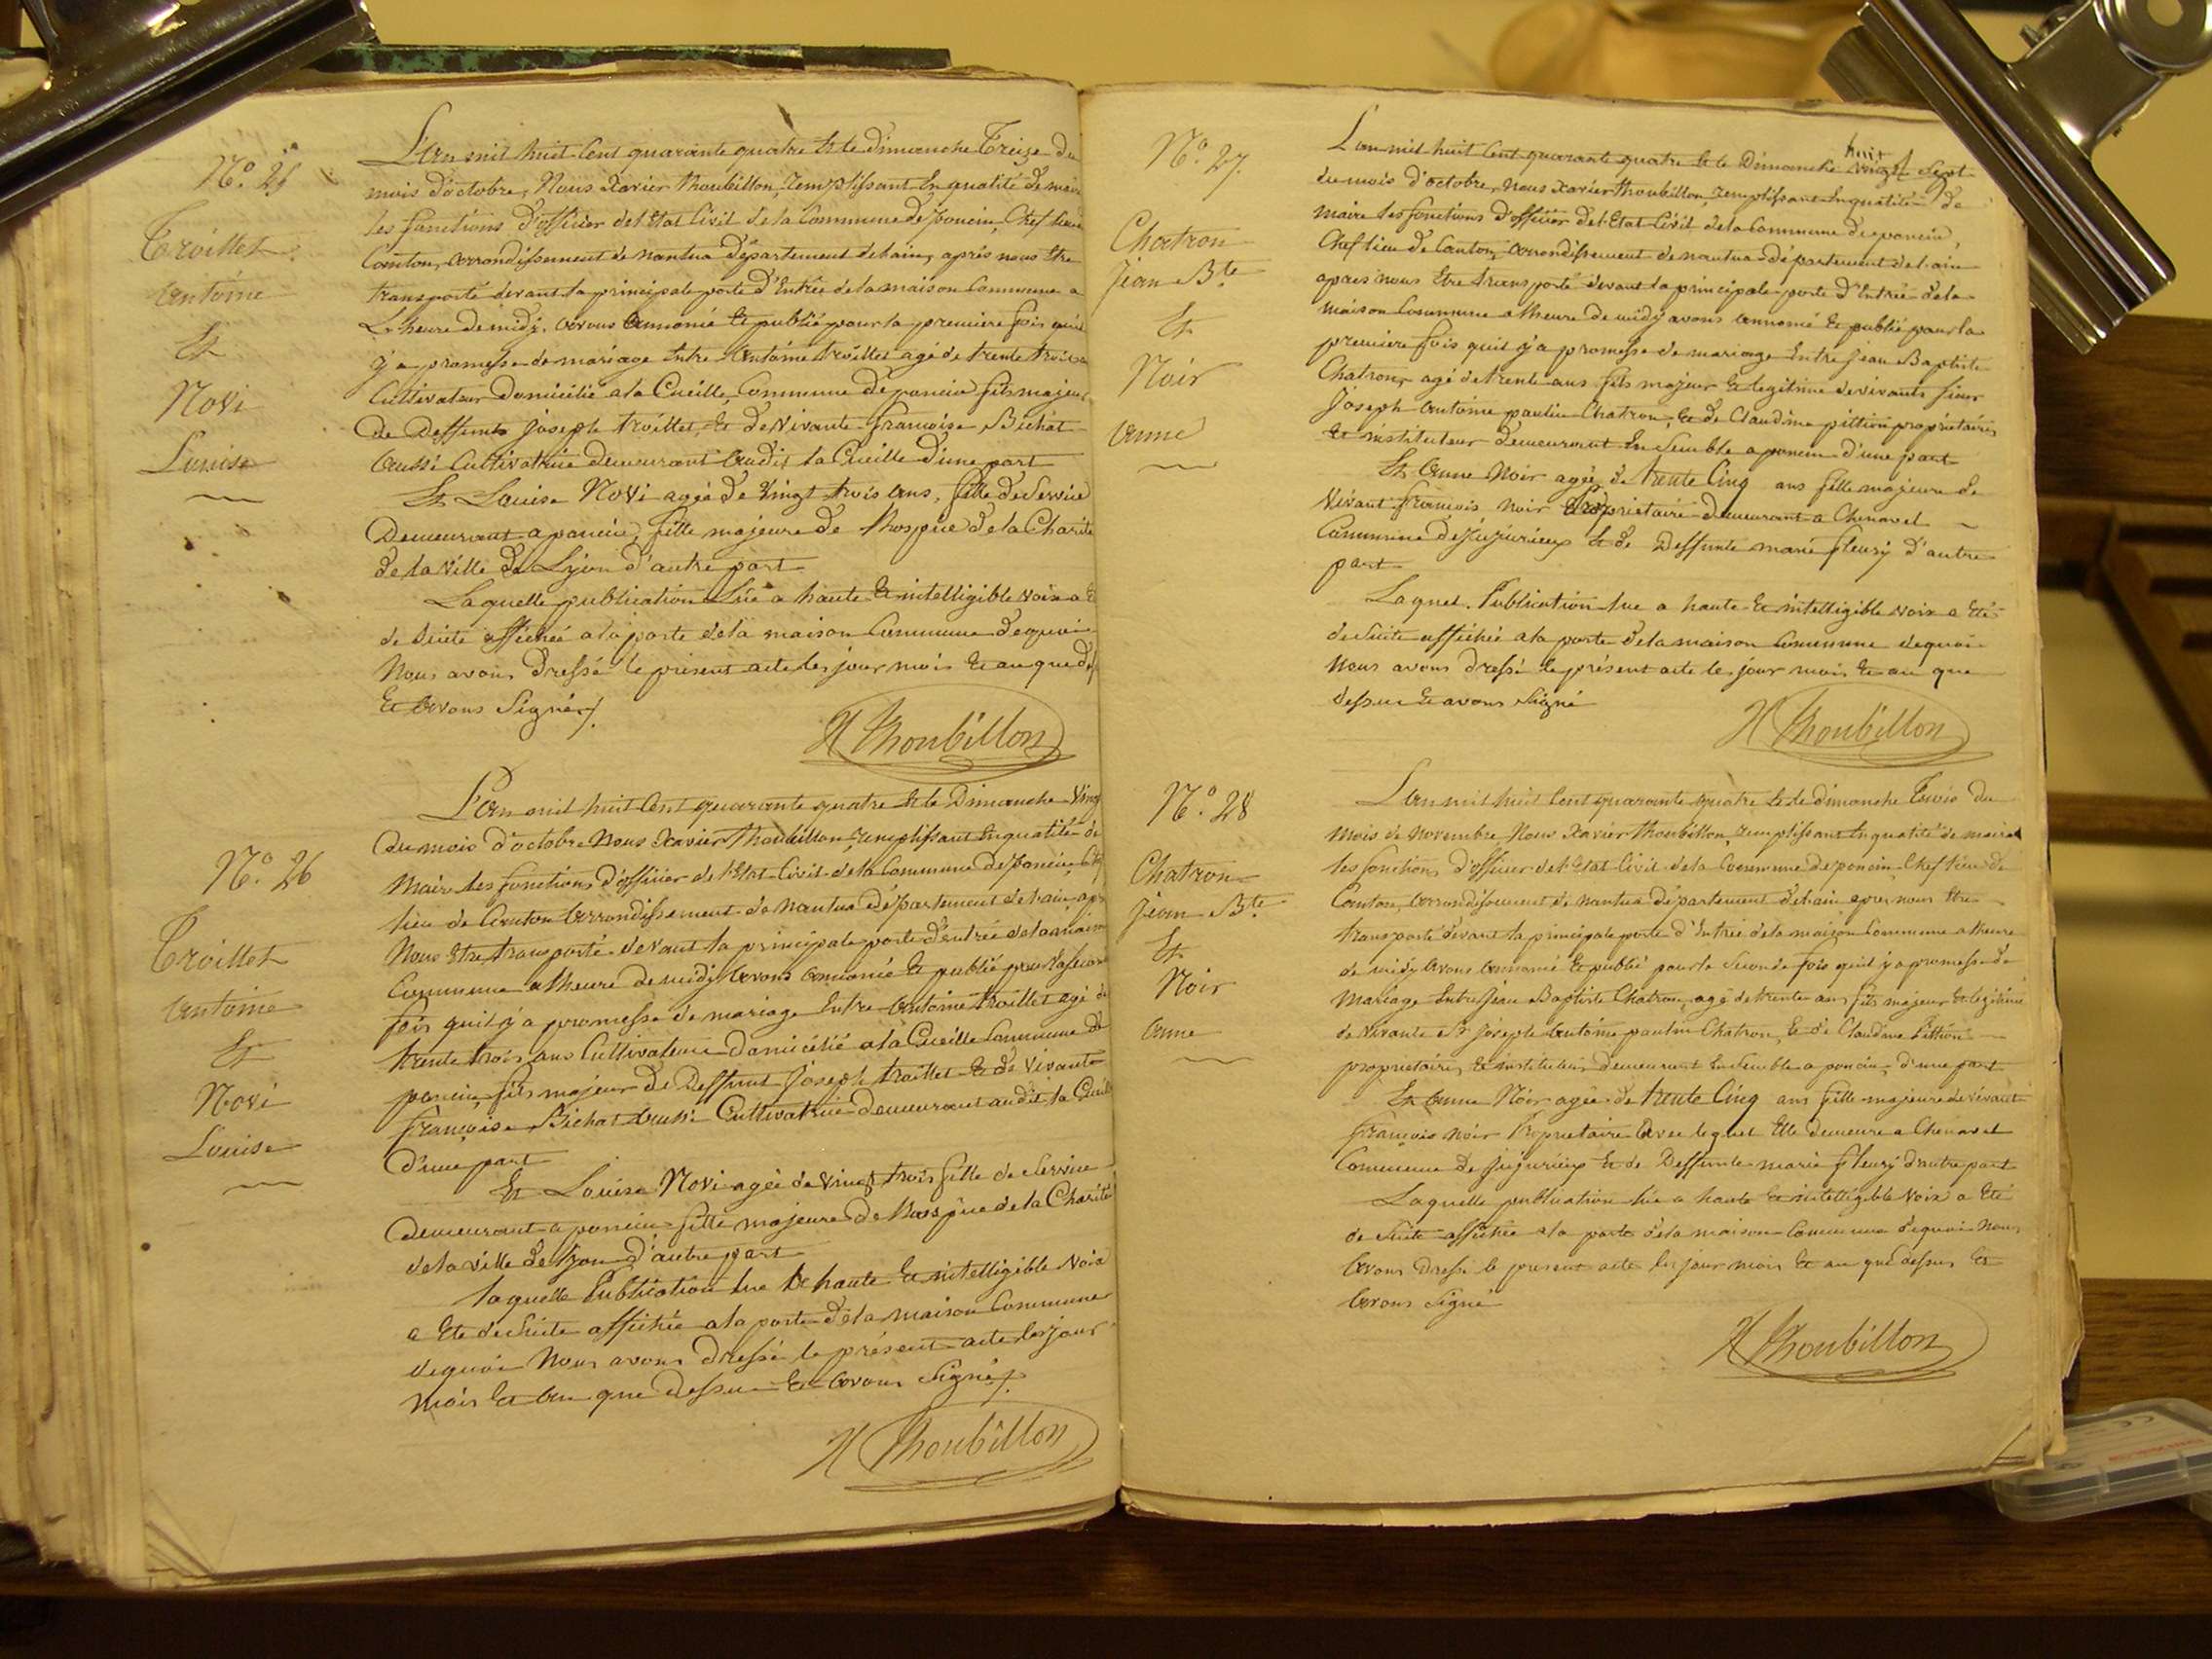 N.° 25
Troillet
Antoine
Et
Novi
Louise
L'An mil huit Cent quarante quatre Et le dimanche Treize du
mois d'octobre, Nous Xavier Thoubillon, remplissant En qualité de maire
les fonctions d'officier de l'Etat Civil de la Commune de poncin, Chef lieu de
Canton, Arrondissement de nantua Département de l'ain, après nous Etre
transporté devant la principale porte d'Entrée de la maison Commune a
L'heure de midy. avons Annoncé Et publié pour la premiere fois qu'il
y a promesse de mariage Entre Antoine troillet agé de trente trois ans
Cultivateur Domicilié a la Cueille, Commune de poncin fils majeur
De Deffunt Joseph troillet, Et de Vivante françoise Bichat
Aussi Cultivatrice demeurant Audit la Cueille d'une part
Et Louise Novi agée de Vingt trois Ans, fille de Service
Demeurant a poncin, fille majeure de Lhospice de la Charité
de la Ville de Lyon d'autre part
Laquelle publication Lüe a haute Et intelligible voix a Eté
de Suite affichée a la porte de la maison Commune dequoi
Nous avons Dressé le présent acte les jour mois Et an que dessus
Et Avons Signé/.
X Thoubillon
N.° 26
Troillet
Antoine
Et
Novi
Louise
L'An mil huit Cent quarante quatre Et le Dimanche Vingt
du mois d'octobre Nous Xavier Thoubillon, remplissant En qualité de
Maire les fonctions d'officier de l'Etat Civil de la Commune de poncin, Chef
lieu de Canton Arrondissement de Nantua Département de l'ain, après
Nous Etre transporté devant la principale porte d'entrée de la maison
Commune a Lheure de midy Avons Annoncé Et publié pour la seconde
fois qu'il y a promesse de mariage Entre Antoine troillet agé de
trente trois ans Cultivateur Domicilié a la Cueille Commune de
poncin, fils majeur de Deffunt Joseph troillet Et de Vivante
françoise Bichat Aussi Cultivatrice demeurant audit la Cueille
d'une part
Et Louise Novi agée de Vingt trois fille de Service
Demeurant a poncin fille majeure de Lhospice de la Charité
de la ville de Lyon d'autre part
laquelle Publication lue A haute Et intelligible Voix
a Eté de Suite affichée a la porte de la maison Commune
dequoi Nous avons Dressé le présent acte les jour
mois Et An que dessus Et Avons Signé/.
X Thoubillon
N.° 27.
Chatron
Jean B.te
Et
Noir
Anne
L'an mil huit Cent quarante quatre Et le Dimanche huit vingt Sept
du mois d'octobre, Nous Xavier Thoubillon, remplissant En qualité de
Maire les fonctions d'officier de l'Etat Civil de la Commune de poncin,
Chef lieu de Canton, Arrondissement de nantua département de l'ain
apres nous Etre transporté devant la principale porte d'Entrée de la
maison Commune a lheure de midy avons Annoncé Et publié pour la
premiere fois quil y a promesse de mariage Entre Jean Baptiste
Chatron, agé de trente ans fils majeur Et legitime de vivants sieur
Joseph Antoine paulin Chatron, Et de Claudine pittion propriétaires
Et instituteur demeurant En Semble a poncin d'une part
Et Anne Noir agée de trente Cinq ans fille majeure de
Vivant françois noir Propriétaire demeurant a Chenavel
Commune de Jujurieux Et de Deffunte marie fleury d'autre
part
Laquel. Publication lue a haute Et intelligible voix a Eté
de Suite affichée a la porte de la maison Commune dequoi
Nous avons dressé le présent acte les jour mois Et an que
dessus Et avons Signé
X Thoubillon
N.° 28
Chatron
Jean B.te
Et
Noir
Anne
L'An mil huit Cent quarante quatre Et le dimanche Trois du
mois de Novembre, Nous Xavier Thoubillon, remplissant En qualité de maire
les fonctions d'officier de l'Etat Civil de la Commune de poncin Chef lieu de
Canton, Arrondissement de nantua Département de l'ain apres nous Etre
transporté devant la principale porte d'Entrée de la maison Commune a lheure
de midy Avons Annoncé Et publié pour la Seconde fois quil y a promesse de
Mariage Entre Jean Baptiste Chatron, agé de trente ans fils majeur Et legitime
de Vivants Sr Joseph Antoine paulin Chatron, Et de Claudine Pittion
propriétaires, Et instituteur, demeurant En Semble a poncin, d'une part
Et Anne Noir agée de trente Cinq ans fille majeure de vivant
françois noir Propriétaire Avec lequel Elle demeure a Chenavel
Commune de Jujurieux Et de Deffunte marie fleury d'autre part
Laquelle publication lüe a haute Et intelligible Voix a Eté
de Suite affichée a la porte de la maison Commune dequoi Nous
Avons Dressé le présent acte les jour mois Et an que dessus Et
Avons Signé
X Thoubillon